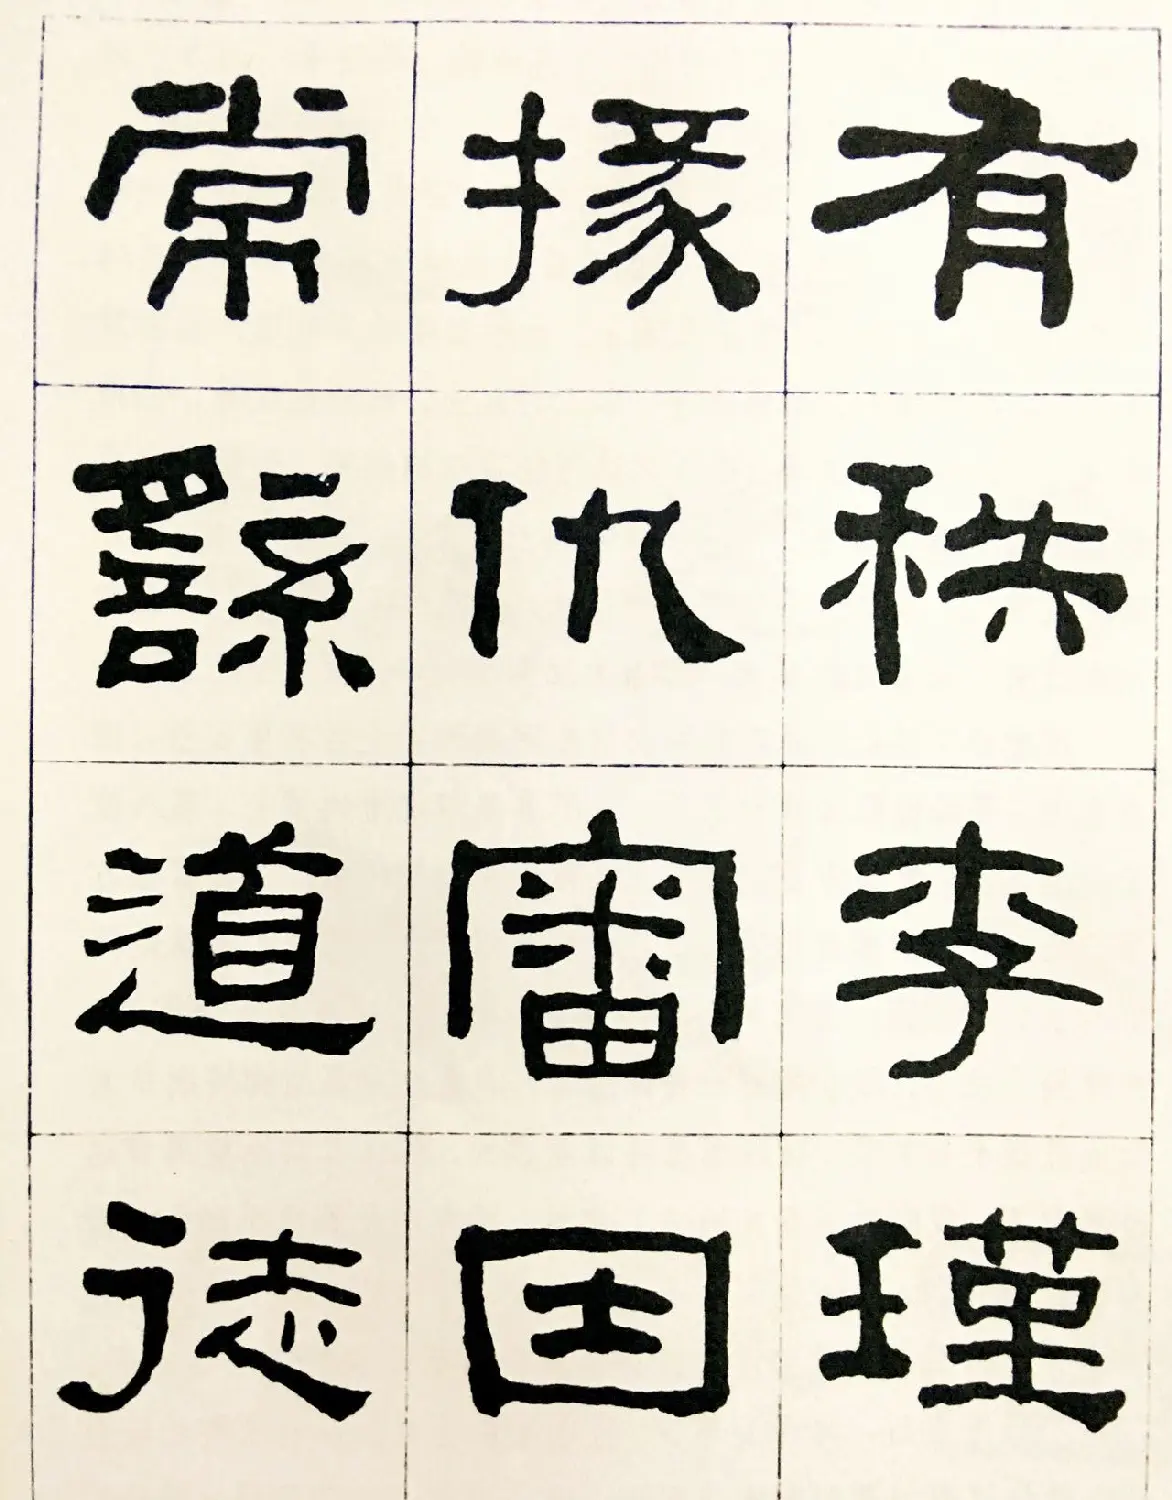 有秩李瑾
掾仇審因
常繇道徒